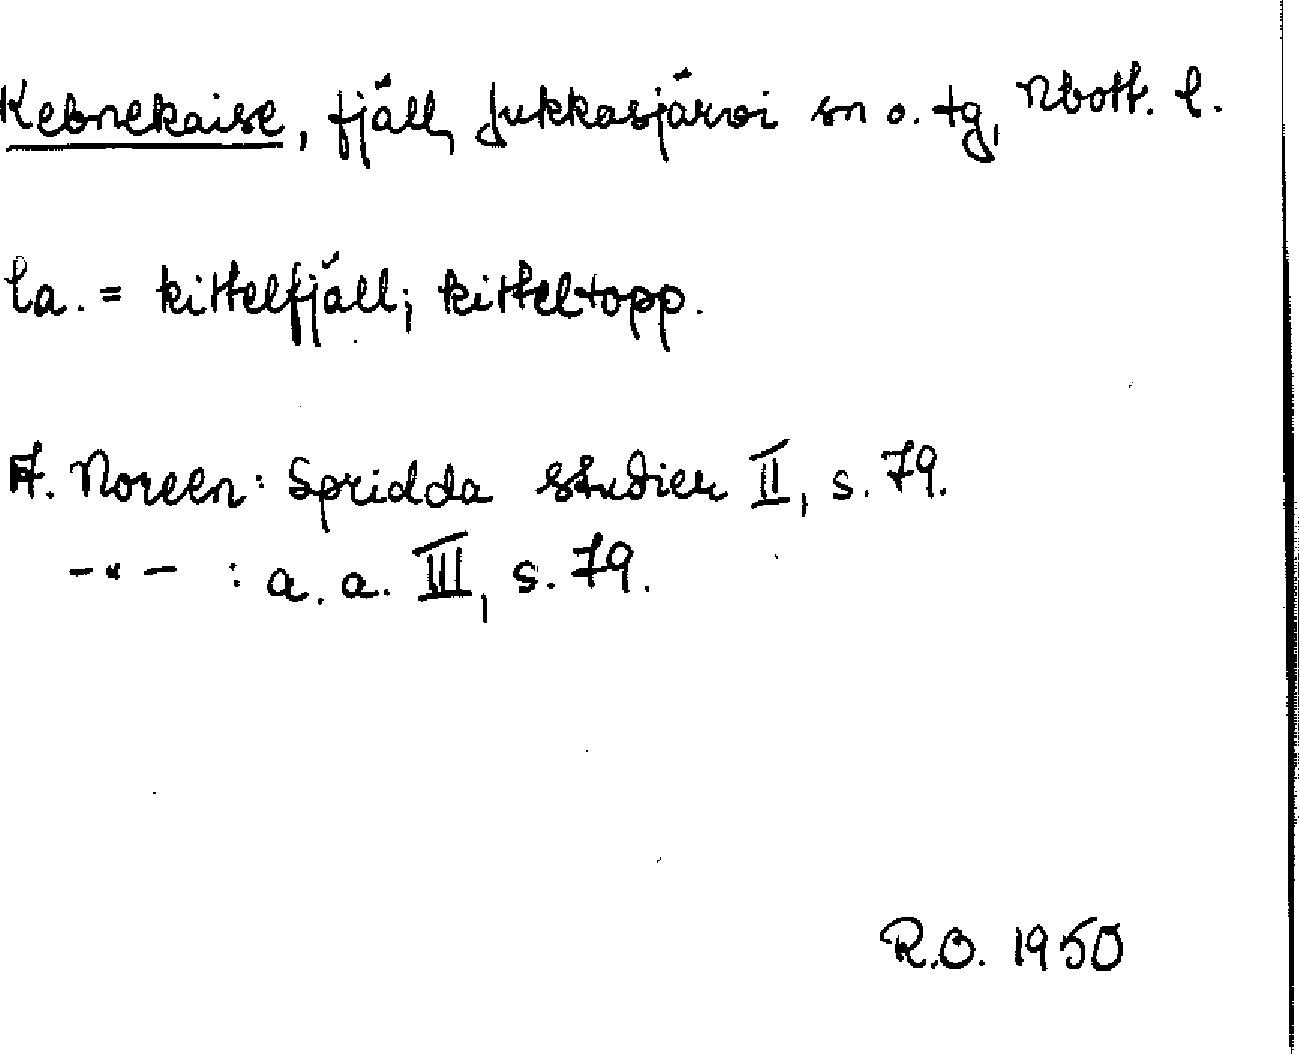 Kebnekaise, fjäll, Jukkasjärvi sn o. tg, Nbott. l.
La. = kittelfjäll; kitteltopp.
A. Noreen: Spridda studier II, s. 79.
-"- : a. a. III, s. 79.
R.O. 1950